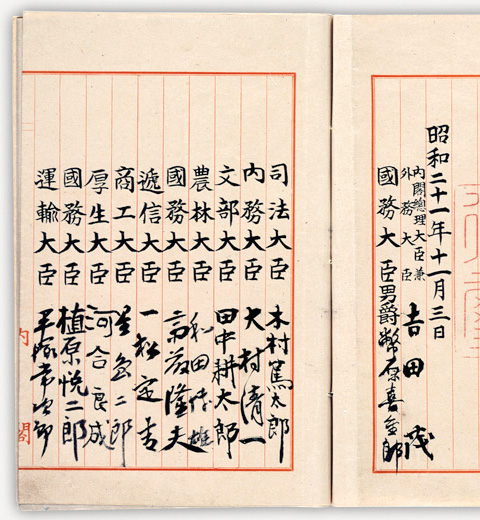 昭和二十一年十一月三日
內閣總理大臣兼
外務大臣 吉田茂
國務大臣 男爵幣原喜重郎
司法大臣 木村篤太郎
內務大臣 大村清一
文部大臣 田中耕太郎
農林大臣 和田博雄
國務大臣 斎藤隆夫
遞信大臣 一松定吉
商工大臣 星島二郎
厚生大臣 河合良成
國務大臣 植原悦二郎
運輸大臣 平塚常次郎
內閣